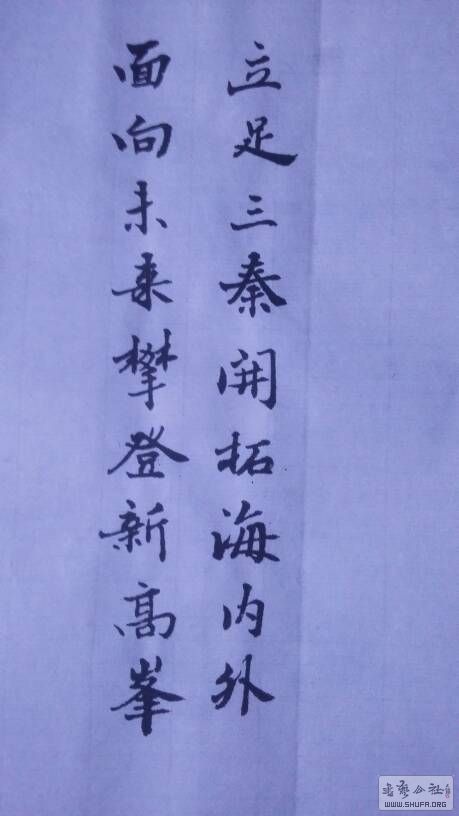 立足三秦開拓海内外
面向未来攀登新高峯
書法公社
WWW.SHUFA.ORG